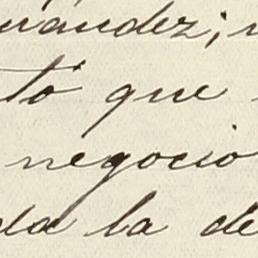 nández;
tó que
negocio
da la de